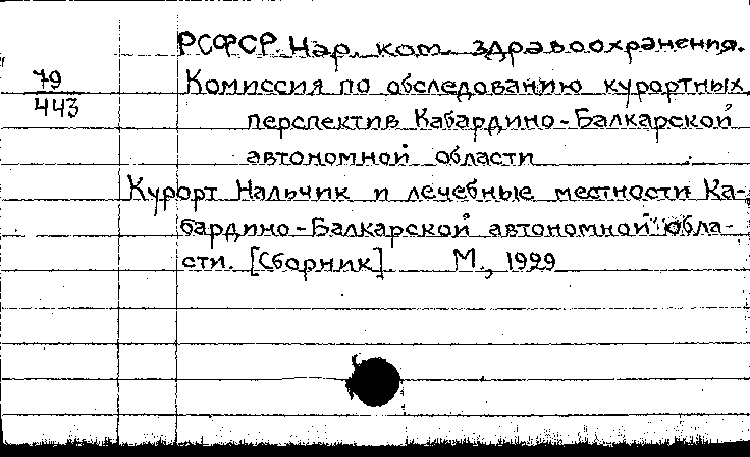 РСФСР. Нар. ком. здравоохранения.
79
443
Комиссия по обследованию курортных
перспектив Кабардино-Балкарской
автономной области
Курорт Нальчик и лечебные местности Ка-
бардино-Балкарской автономной обла-
сти. [Сборник] М., 1929